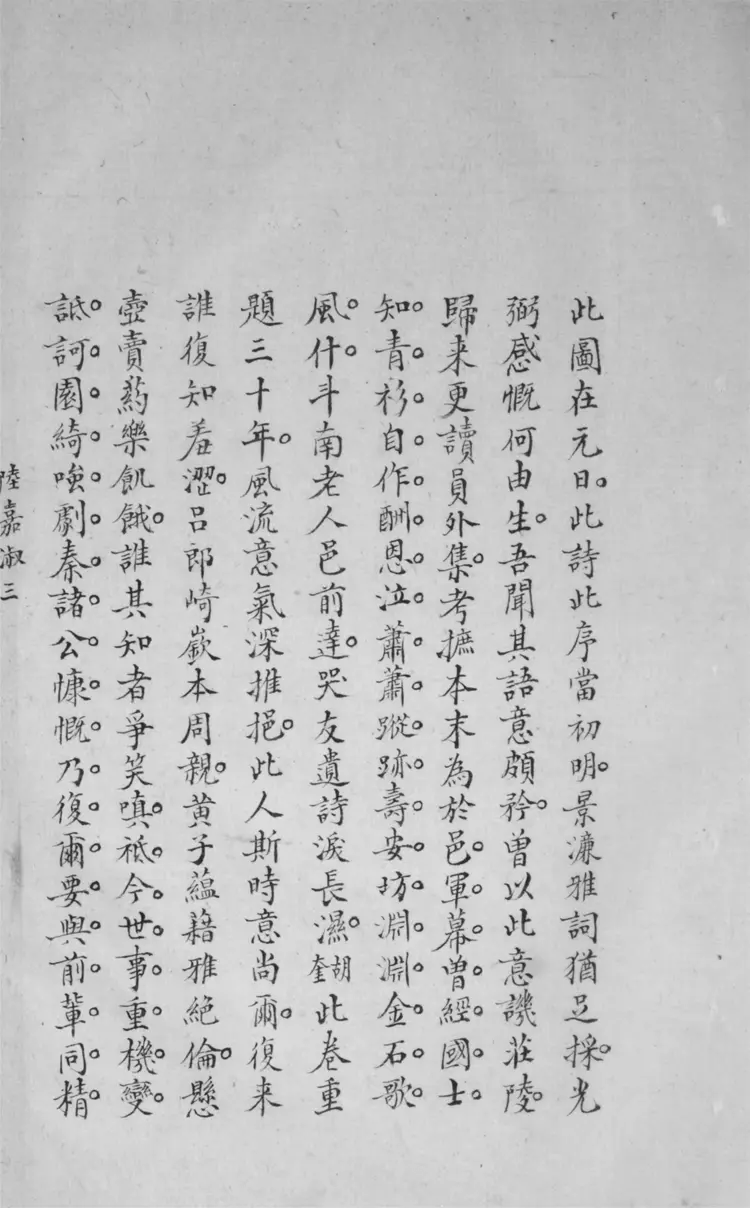 此圖在元日。此詩此序當初明。景濂雅詞猶足採。光
弼感慨何由生。吾聞其語意頗矜。曾以此意譏莊陵。
歸来更讀員外集。考摭本末為於邑。軍幕曾經國士
知。青衫自作酬恩泣。蕭蕭蹤跡壽安坊。淵淵金石歌
風什。斗南老人邑前達。哭友遺詩淚長濕。胡奎此卷重
題三十年。風流意氣深推挹。此人斯時意尚爾。復来
誰復知羞澀。呂郎崎嶔本周親。黄子蘊藉雅絕倫。懸
壺賣葯樂飢餓。誰其知者爭笑嗔。祗今世事重機變。
詆訶園綺嗤劇秦。諸公慷慨乃復爾。要與前輩同精
陸嘉淑三